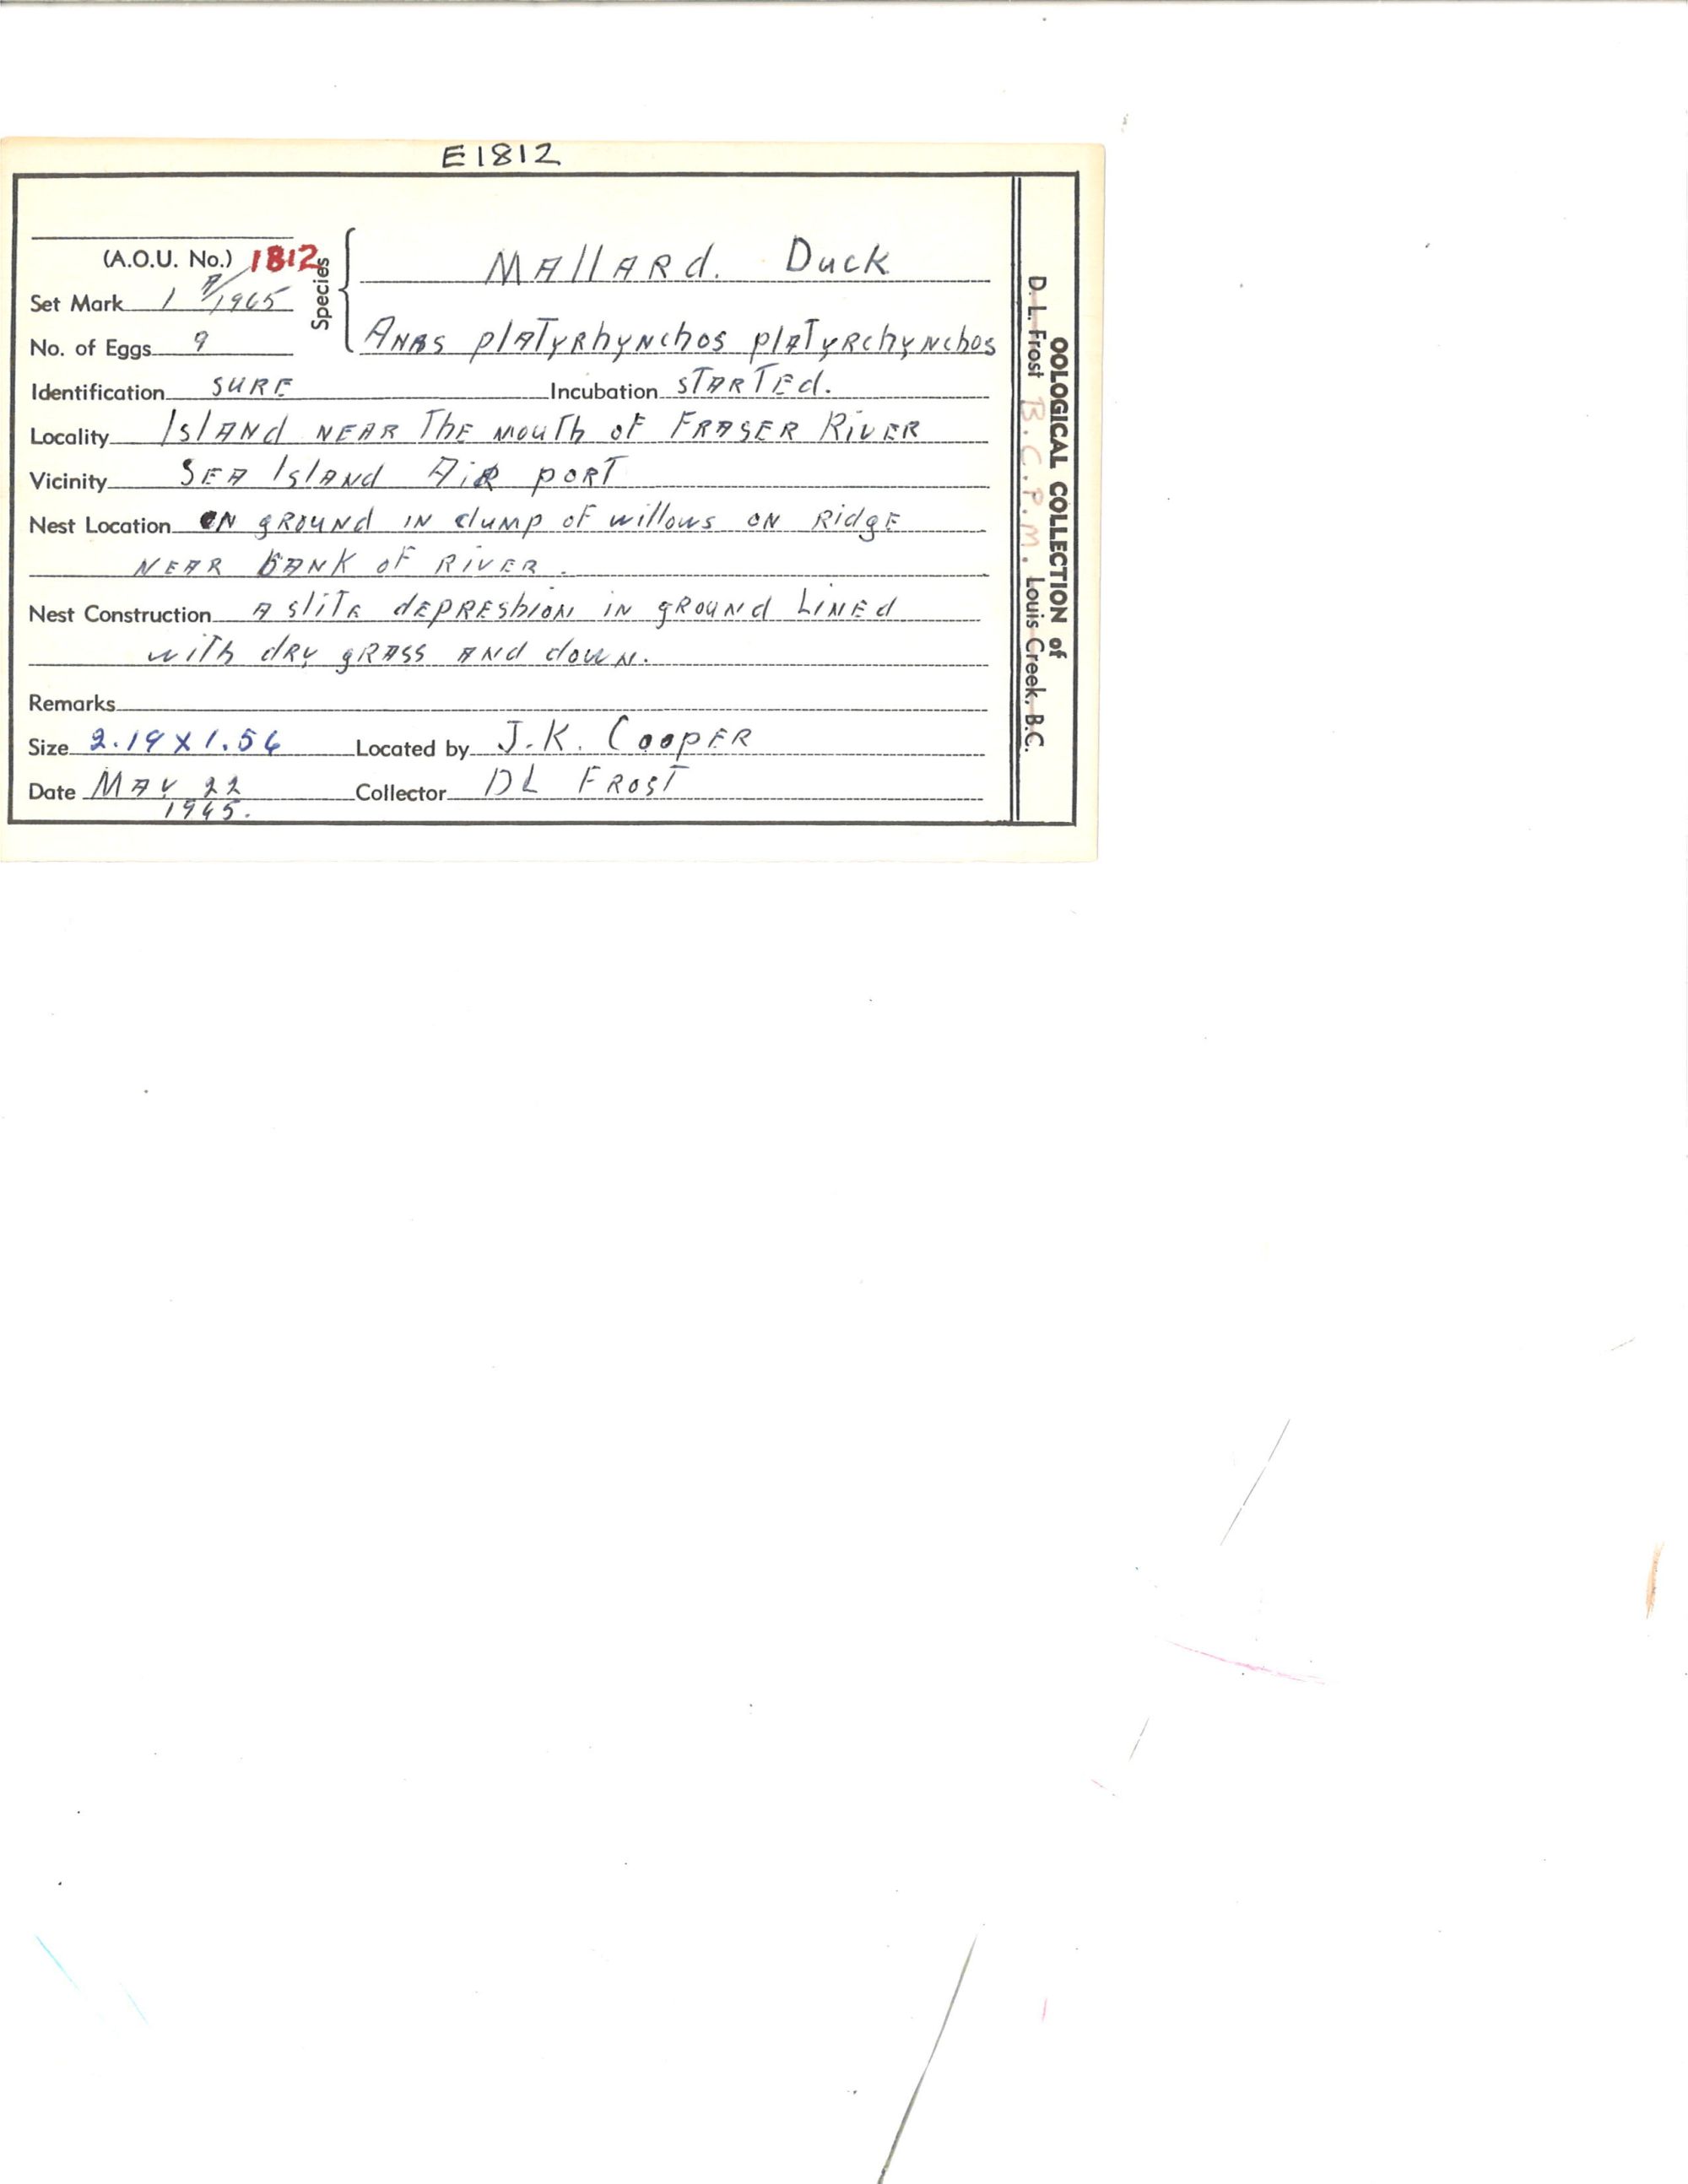 E1812
(A.O.U. No.) 1812
Species
Mallard. Duck
Set Mark 1 9/1965
No. of Eggs 9
Anas platyrhynchos platyrchynchos
Identification SURE Incubation STARTEd.
Locality Island near the mouth of Fraser River
Vicinity Sea Island Air port
Nest Location on ground in clump of willows on Ridge
near bank of River.
Nest Construction A slite depression in ground Lined
with dry grass and down.
Remarks
Size 2.19 X 1.56 Located by J.K. Cooper
Date May 22 Collector DL Frost
1965.
OOLOGICAL COLLECTION of
D. L. Frost B.C.P.M. Louis Creek, B.C.